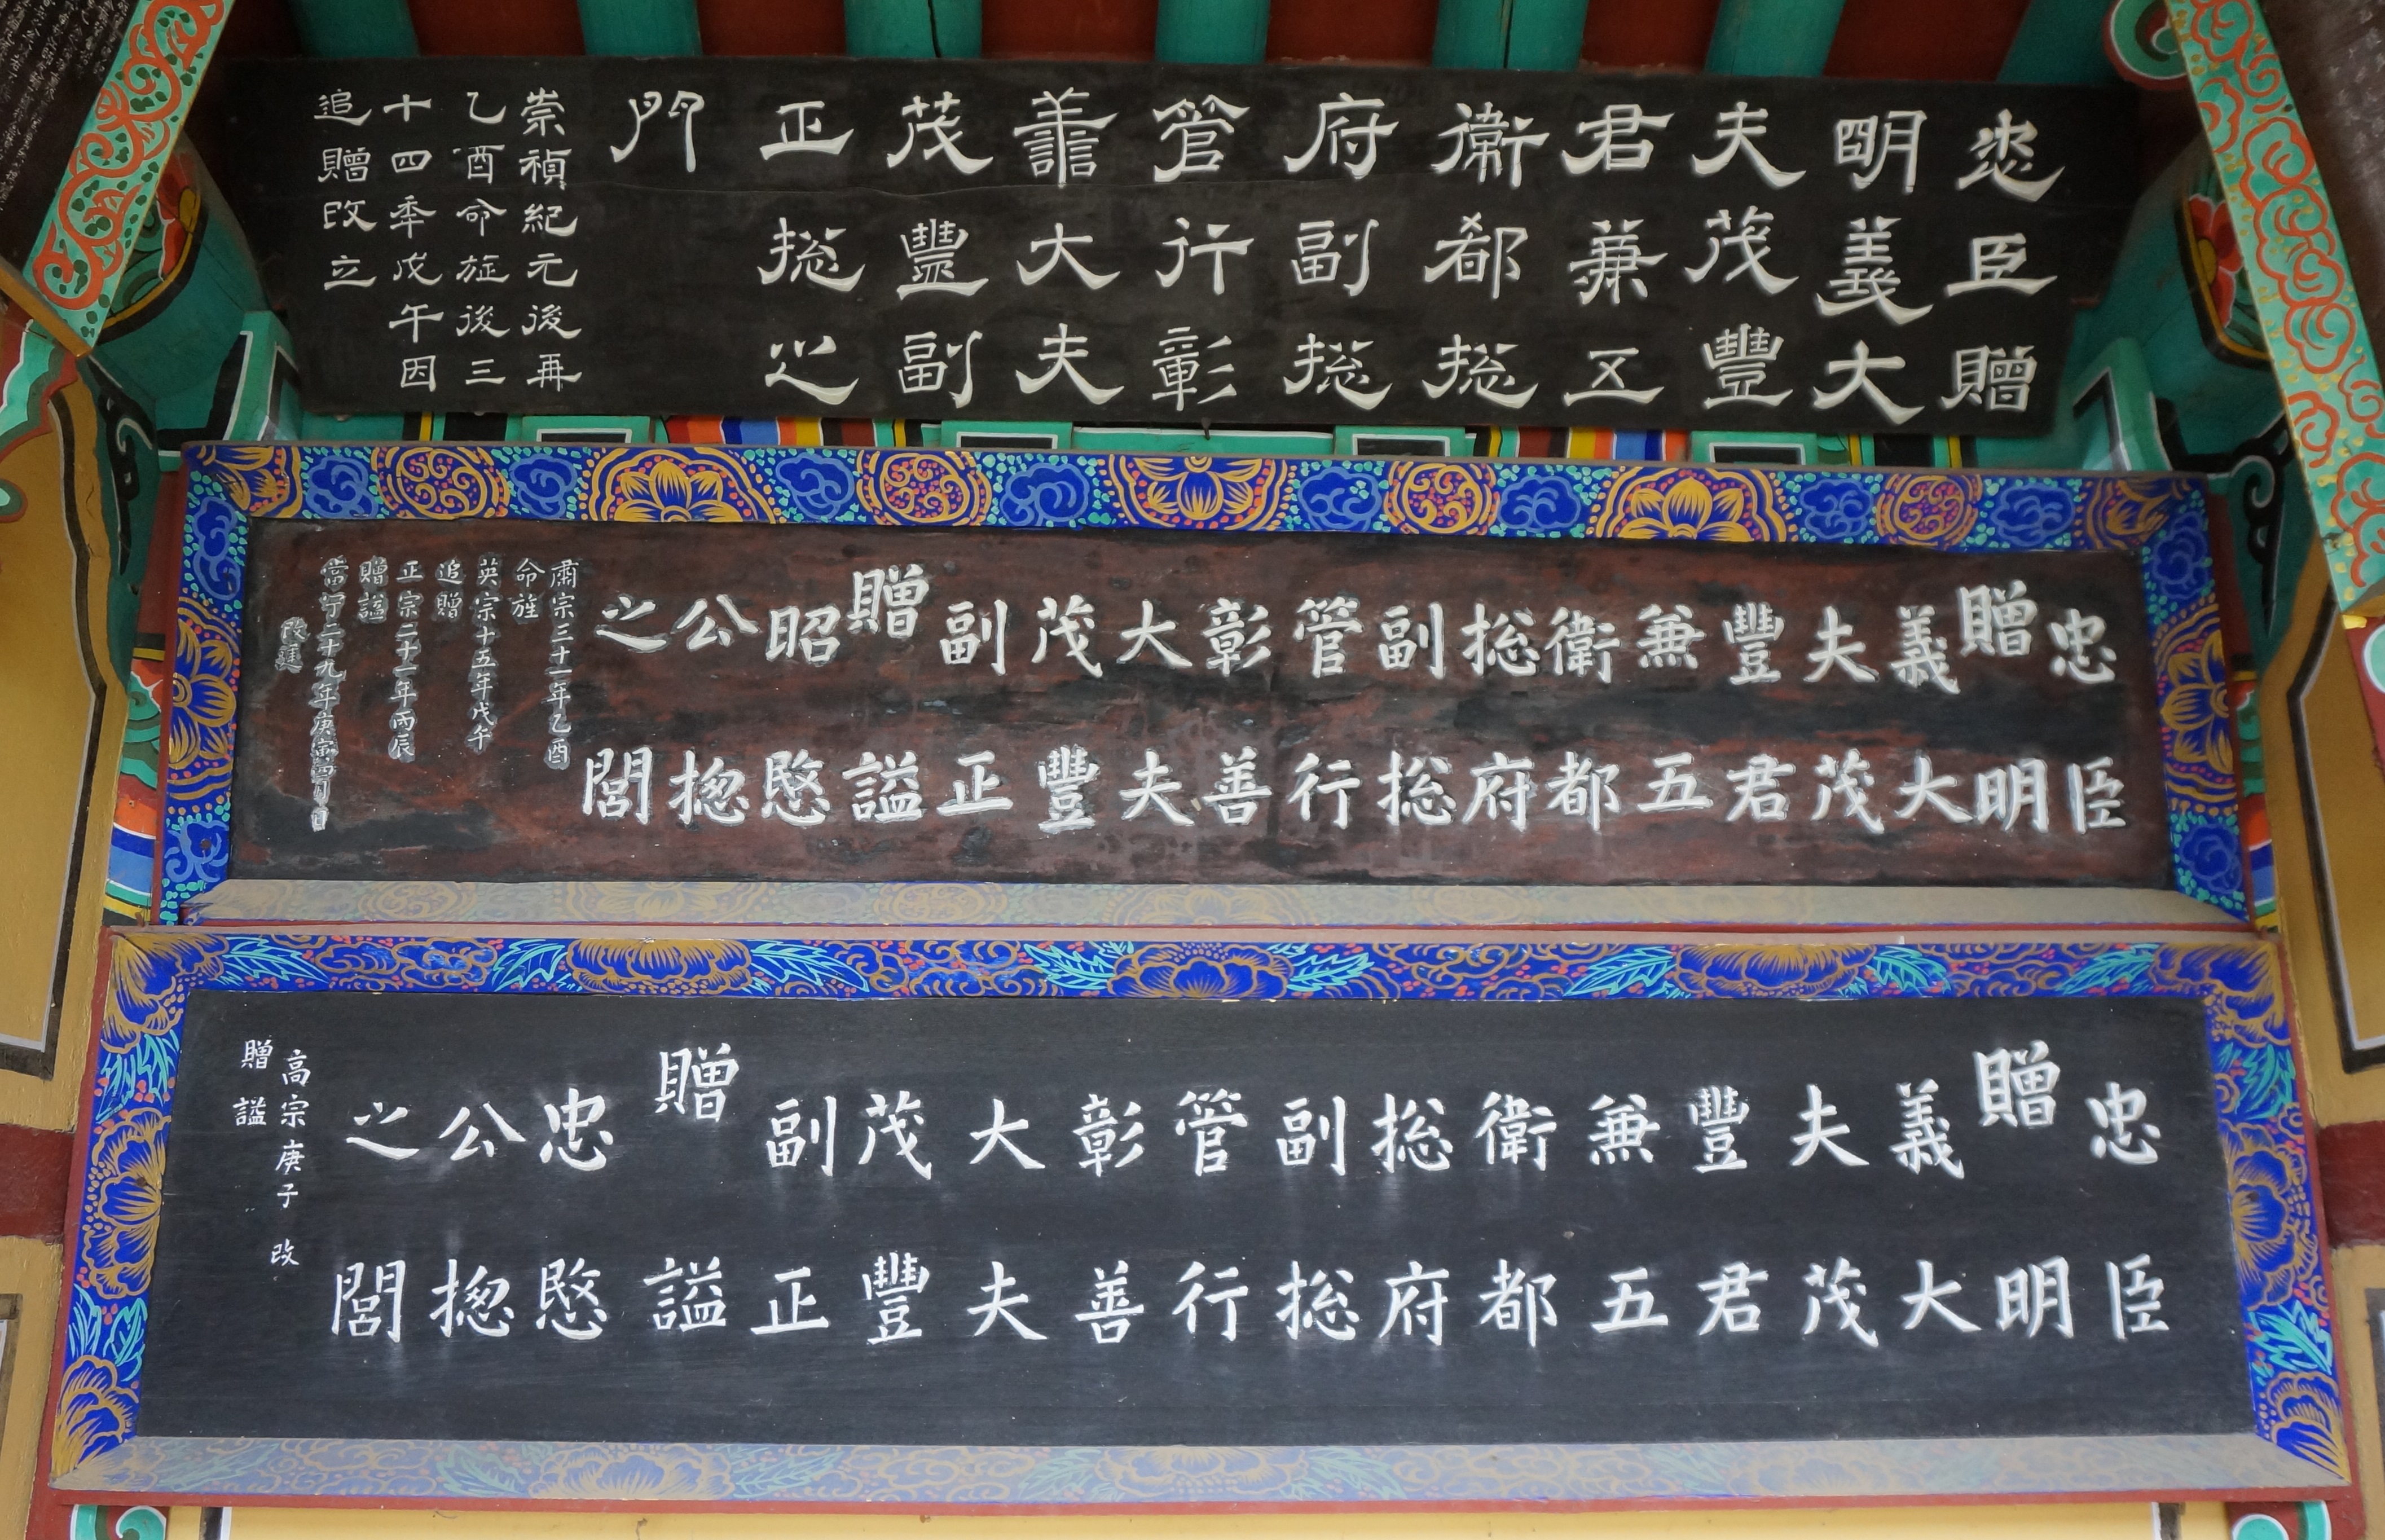 忠臣贈
明義大
夫茂豐
君兼五
衛都捴
府副捴
管行彰
善大夫
茂豐副
正捴之
門
崇禎紀元後再
乙酉命旌後三
十四季戊午因
追贈改立
忠臣
贈明
義大
夫茂
豐君
兼五
衛都
捴府
副捴
管行
彰善
大夫
茂豐
副正
贈謚
昭愍
公揔
之閭
肅宗三十一年乙酉
命旌
英宗十五年戊午
追贈
正宗二十一年丙辰
贈謚
當宁二十九年庚寅四月日
改建
忠臣
贈明
義大
夫茂
豐君
兼五
衛都
捴府
副捴
管行
彰善
大夫
茂豐
副正
贈謚
忠愍
公揔
之閭
高宗庚子改
贈謚